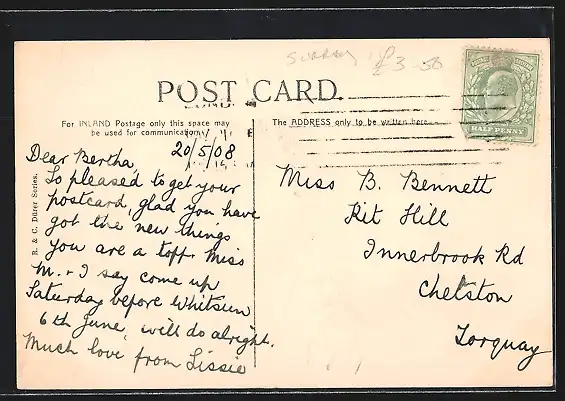 Surrey £3-50
POST CARD.
For INLAND Postage only this space may
be used for communication.
The ADDRESS only to be written here.
HALFPENNY
R. & C. Dürer Series.
20/5/08
Dear Bertha,
So pleased to get your
postcard, glad you have
got the new things
you are a toff. Miss
M. & I say come up
Saturday before Whitsun
6th June, will do alright.
Much love from Lissie
Miss B. Bennett
Kit Hill
Innerbrook Rd
Chelston
Torquay